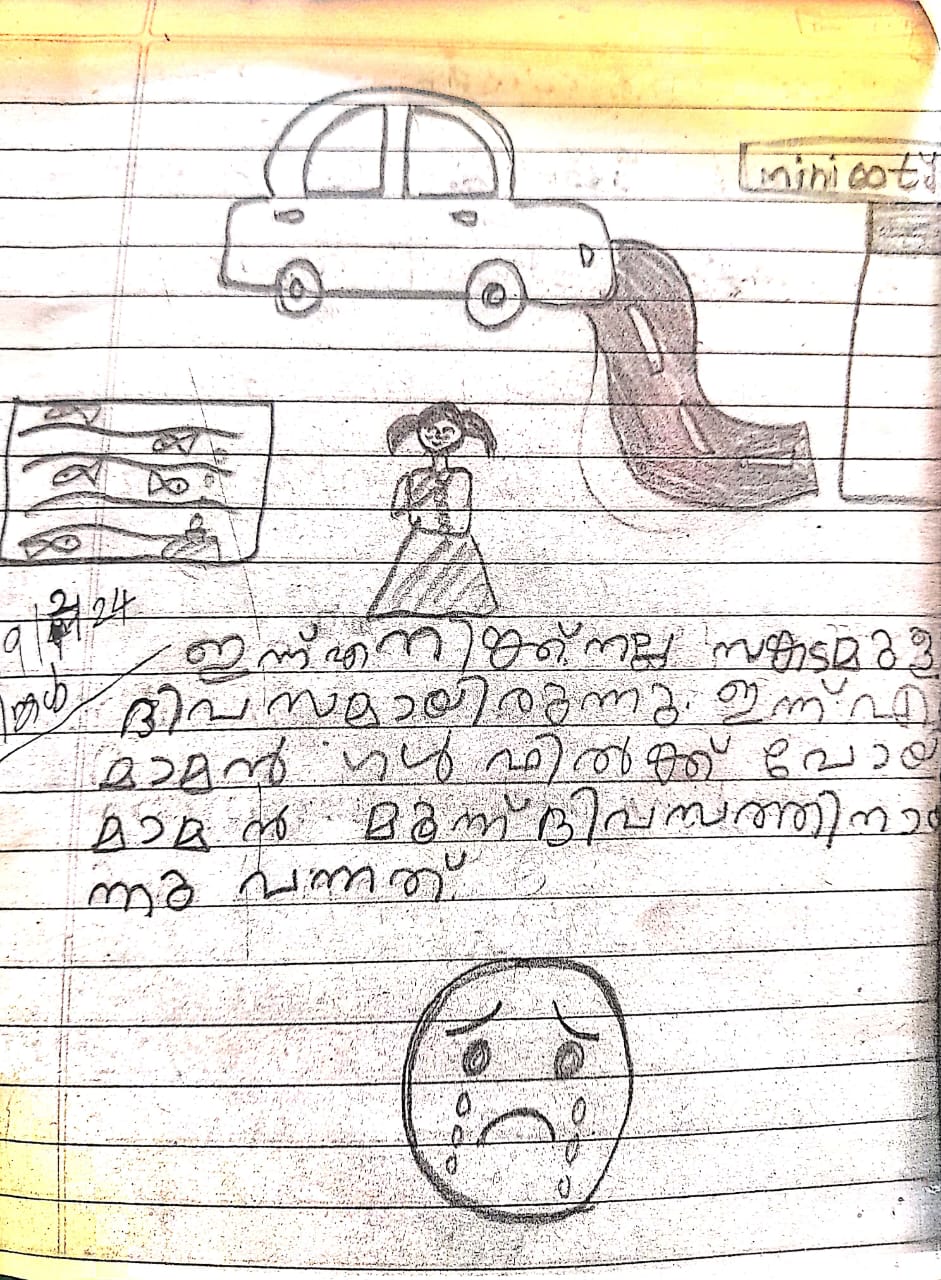 mini coty
9/2/24
ഇന്ന് എനിക്ക് നല്ല സങ്കടമുള്ള
ദിവസമായിരുന്നു. ഇന്ന് എ
മാമൻ ഗൾഫിൽക്ക് പോയ
മാമൻ മുന്ന് ദിവസത്തിനാ
ന്നു വന്നത്.